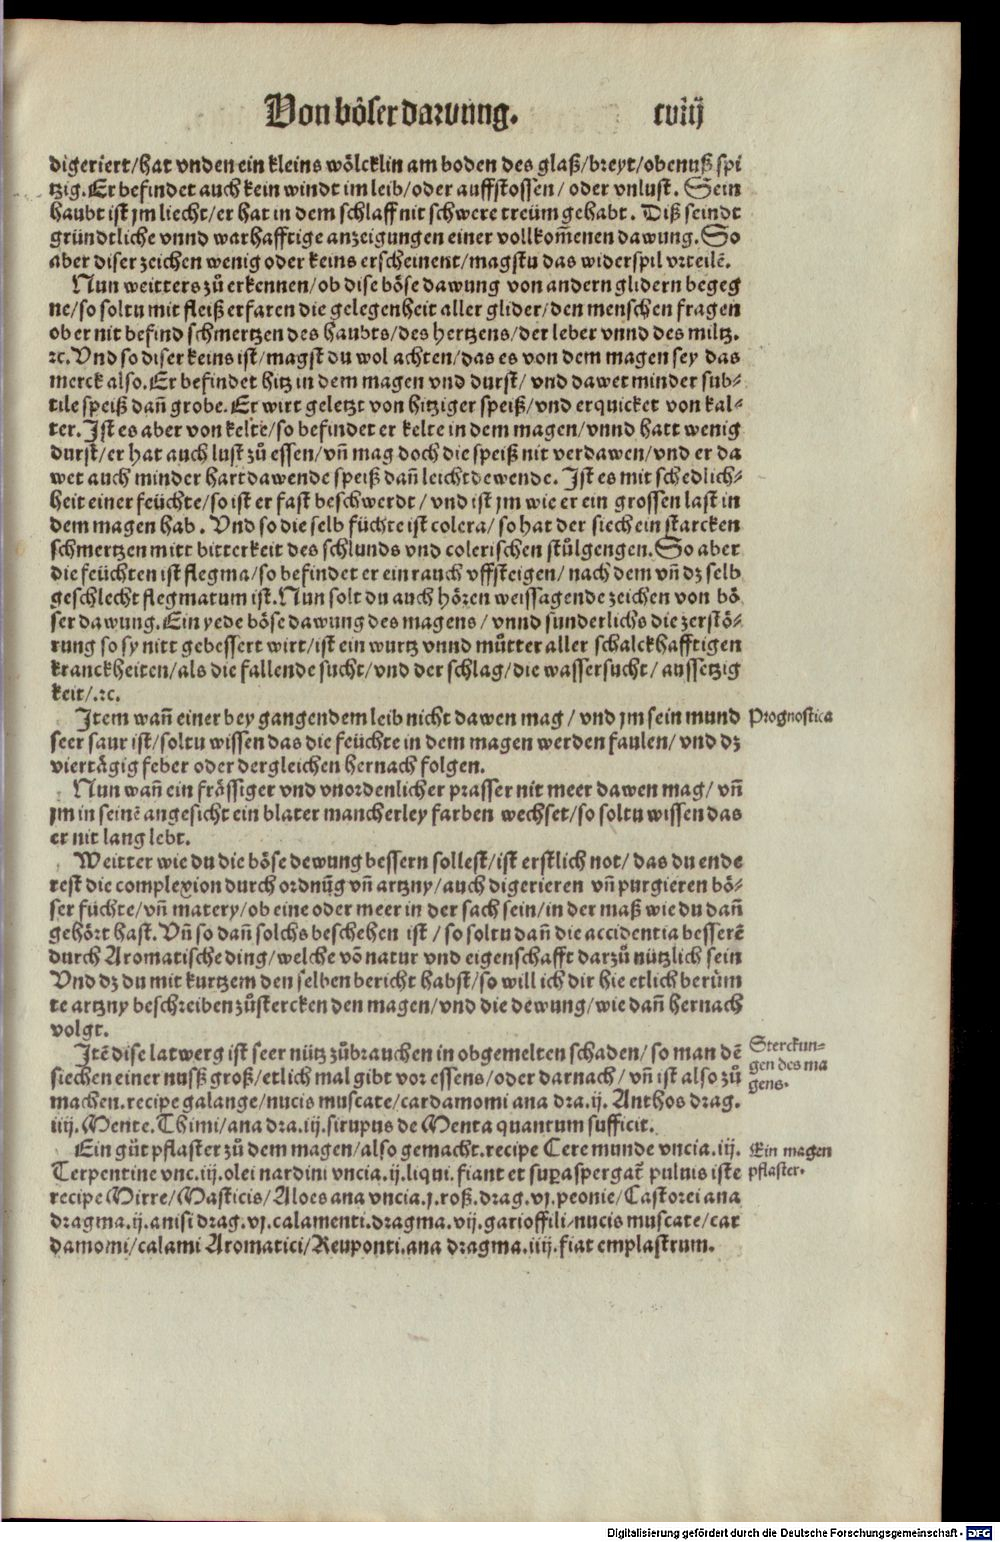 Von böser dawung. cviij
digeriert/hat vnden ein kleins wölcklin am boden des glaß/breyt/obenuß spi
tzig. Er befindet auch kein windt im leib/oder auffstossen/ oder vnlust. Sein
haubt ist jm liecht/er hat in dem schlaff nit schwere treüm gehabt. Diß seindt
gründtliche vnnd warhafftige anzeigungen einer vollkom̃enen dawung. So
aber diser zeichen wenig oder keins erscheinent/magstu das widerspil vrteilẽ.
Nun weitters zů erkennen/ob dise böse dawung von andern glidern begeg
ne/so soltu mit fleiß erfaren die gelegenheit aller glider/den menschen fragen
ob er nit befind schmertzen des haubts/des hertzens/der leber vnnd des miltz.
ꝛc. Vnd so diser keins ist/magst du wol achten/das es von dem magen sey das
merck also. Er befindet hitz in dem magen vnd durst/ vnd dawet minder sub-
tile speiß dañ grobe. Er wirt geletzt von hitziger speiß/vnd erquicket von kal-
ter. Ist es aber von kelte/so befindet er kelte in dem magen/vnnd hatt wenig
durst/er hat auch lust zů essen/vñ mag doch die speiß nit verdawen/vnd er da
wet auch minder hart dawende speiß dañ leicht dewende. Ist es mit schedlich-
heit einer feüchte/so ist er fast beschwerdt/ vnd ist jm wie er ein grossen last in
dem magen hab. Vnd so die selb füchte ist colera/ so hat der siech ein starcken
schmertzen mitt bitterkeit des schlunds vnd colerischen stůlgengen. So aber
die feüchten ist flegma/so befindet er ein rauch vffsteigen/ nach dem vñ dz selb
geschlecht flegmatum ist. Nun solt du auch hören weissagende zeichen von bö
ser dawung. Ein yede böse dawung des magens/ vnnd sunderlichs die zerstö-
rung so sy nitt gebessert wirt/ist ein wurtz vnnd můtter aller schalckhafftigen
kranckheiten/als die fallende sucht/vnd der schlag/die wassersucht/ aussetzig
keit/.ꝛc.
Item wañ einer bey gangendem leib nicht dawen mag/ vnd jm sein mund
seer saur ist/soltu wissen das die feüchte in dem magen werden faulen/ vnd dz
viertägig feber oder dergleichen hernach folgen.
Prognostica
Nun wañ ein frässiger vnd vnordenlicher prasser nit meer dawen mag/ vñ
jm in seinẽ angesicht ein blater mancherley farben wechset/so soltu wissen das
er nit lang lebt.
Weitter wie du die böse dewung bessern sollest/ist erstlich not/ das du ende
rest die complexion durch ordnũg vñ artzny/auch digerieren vñ purgieren bö-
ser füchte/vñ matery/ob eine oder meer in der sach sein/in der maß wie du dañ
gehört hast. Vñ so dañ solchs beschehen ist/ so soltu dañ die accidentia besserẽ
durch Aromatische ding/welche võ natur vnd eigenschafft darzů nützlich sein
Vnd dz du mit kurtzem den selben bericht habst/so will ich dir hie etlich berům
te artzny beschreiben zůstercken den magen/vnd die dewung/wie dañ hernach
volgt.
Itẽ dise latwerg ist seer nütz zůbrauchen in obgemelten schaden/ so man dẽ
siechen einer nusß groß/etlich mal gibt vor essens/oder darnach/ vñ ist also zů
machen. recipe galange/nucis muscate/cardamomi ana dra.ij. Anthos drag.
iiij. Mente. Thimi/ana dra.iij.sirupus de Menta quantum sufficit.
Sterckun-
gen des ma
gens.
Ein gůt pflaster zů dem magen/also gemacht. recipe Cere munde vncia.iij.
Terpentine vnc.iij.olei nardini vncia.ij.liqui. fiant et suꝑaspergat̃ puluis iste
recipe Mirre/Masticis/Aloes ana vncia.j.roß.drag.vj.peonie/Castorei ana
dragma.ij.anisi drag.vj.calamenti.dragma.vij.garioffili/nucis muscate/car
damomi/calami Aromatici/Reuponti.ana dragma.iiij.fiat emplastrum.
Ein magen
pflaster.
Digitalisierung gefördert durch die Deutsche Forschungsgemeinschaft - DFG